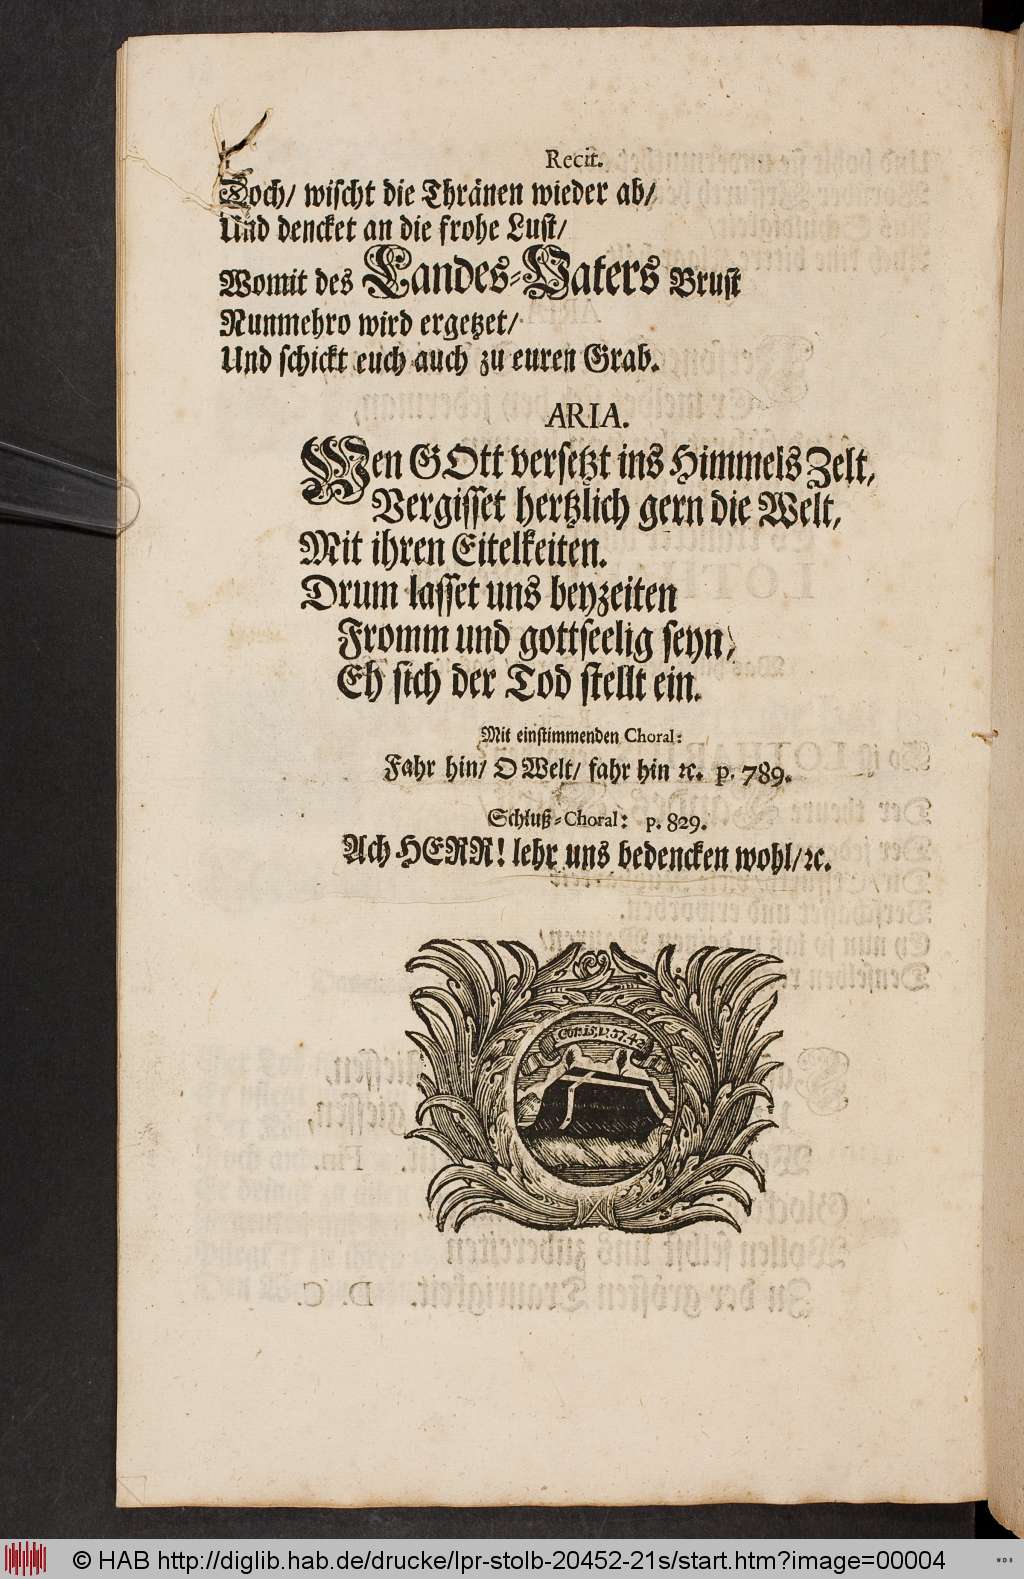 Recit.
Doch/ wischt die Thränen wieder ab/
Und dencket an die frohe Lust/
Womit des Landes-Vaters Brust
Nunmehro wird ergetzet/
Und schickt euch auch zu euren Grab.
ARIA.
Wen GOtt versetzt ins Himmels Zelt,
Vergisset hertzlich gern die Welt,
Mit ihren Eitelkeiten.
Drum lasset uns beyzeiten
Fromm und gottseelig seyn,
Eh sich der Tod stellt ein.
Mit einstimmenden Choral:
Fahr hin/ O Welt/ fahr hin ꝛc. p. 789.
Schluß-Choral: p. 829.
Ach HERR! lehr uns bedencken wohl/ ꝛc.
Cor. 15. v. 37. 42
© HAB http://diglib.hab.de/drucke/lpr-stolb-20452-21s/start.htm?image=00004